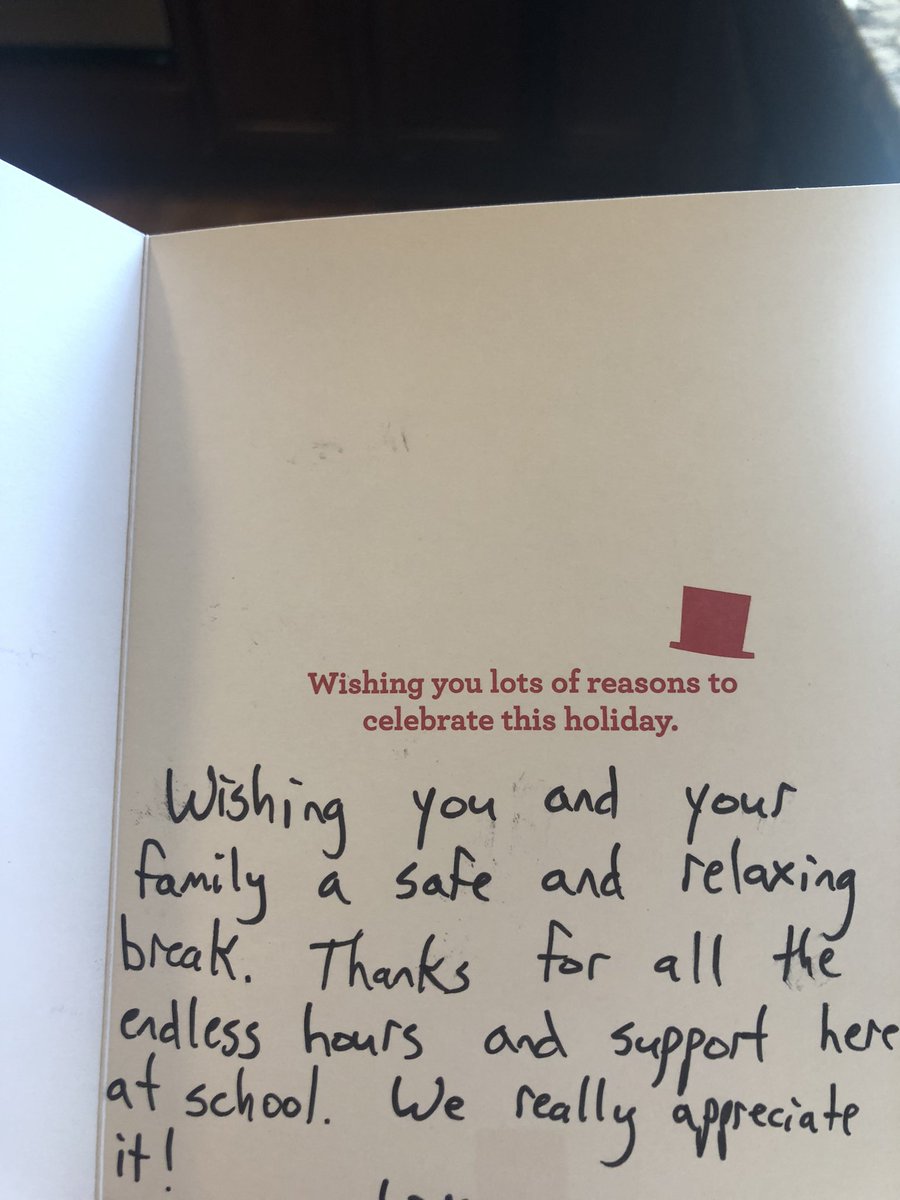 Wishing you lots of reasons to
celebrate this holiday.
Wishing you and your
family a safe and relaxing
break. Thanks for all the
endless hours and support here
at school. We really appreciate
it!